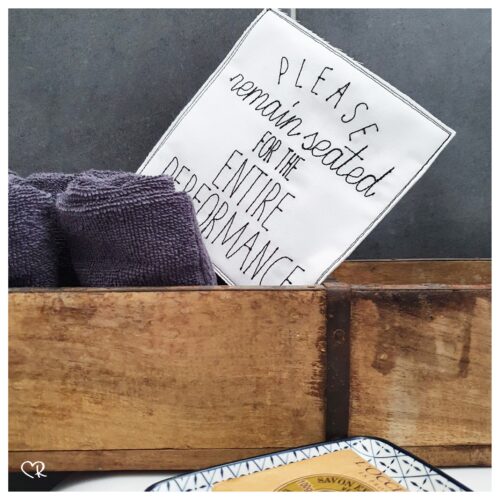 PLEASE
remain seated
FOR THE
ENTIRE
PERFORMANCE
R
SAVON